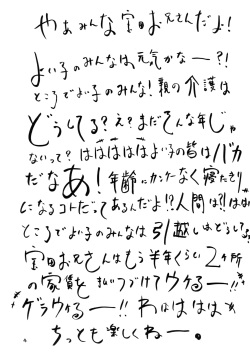 やあみんな宝田お兄さんだよ!
よい子のみんなは元気かなー?!
ところでよい子のみんな!親の介護は
どうしてる?え?まだそんな年じゃ
ないって?はははははよい子の皆はバカ
だなあ!年齢にカンケーなく寝たきり
になるコトだってあるんだよ!?人間は?!はは
ところでよい子のみんなは引越しはどうしてる
宝田お兄さんはもう半年くらい2ヶ所
の家賃を払いつづけてウケるー!!
ゲラウケるー!!わははははは
ちっとも楽しくねー。